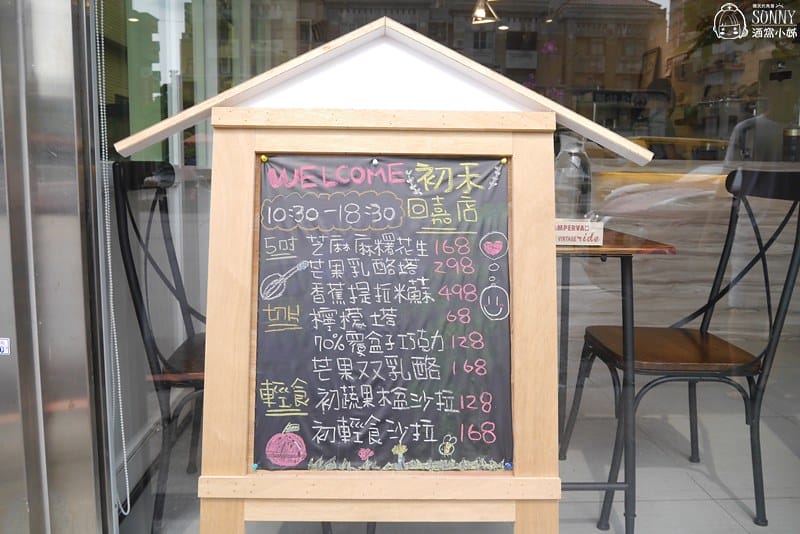 SONNY
酒窩小姊
WELCOME 初禾
10:30-18:30 回嘉店
5吋 芝麻麻糬花生 168
芒果乳酪塔 298
香蕉提拉米蘇 498
切片 檸檬塔 68
70%覆盆子巧克力 128
芒果双乳酪 168
輕食 初蔬果木盒沙拉 128
初輕食沙拉 168
AMPERVAN
VINTAGE ride